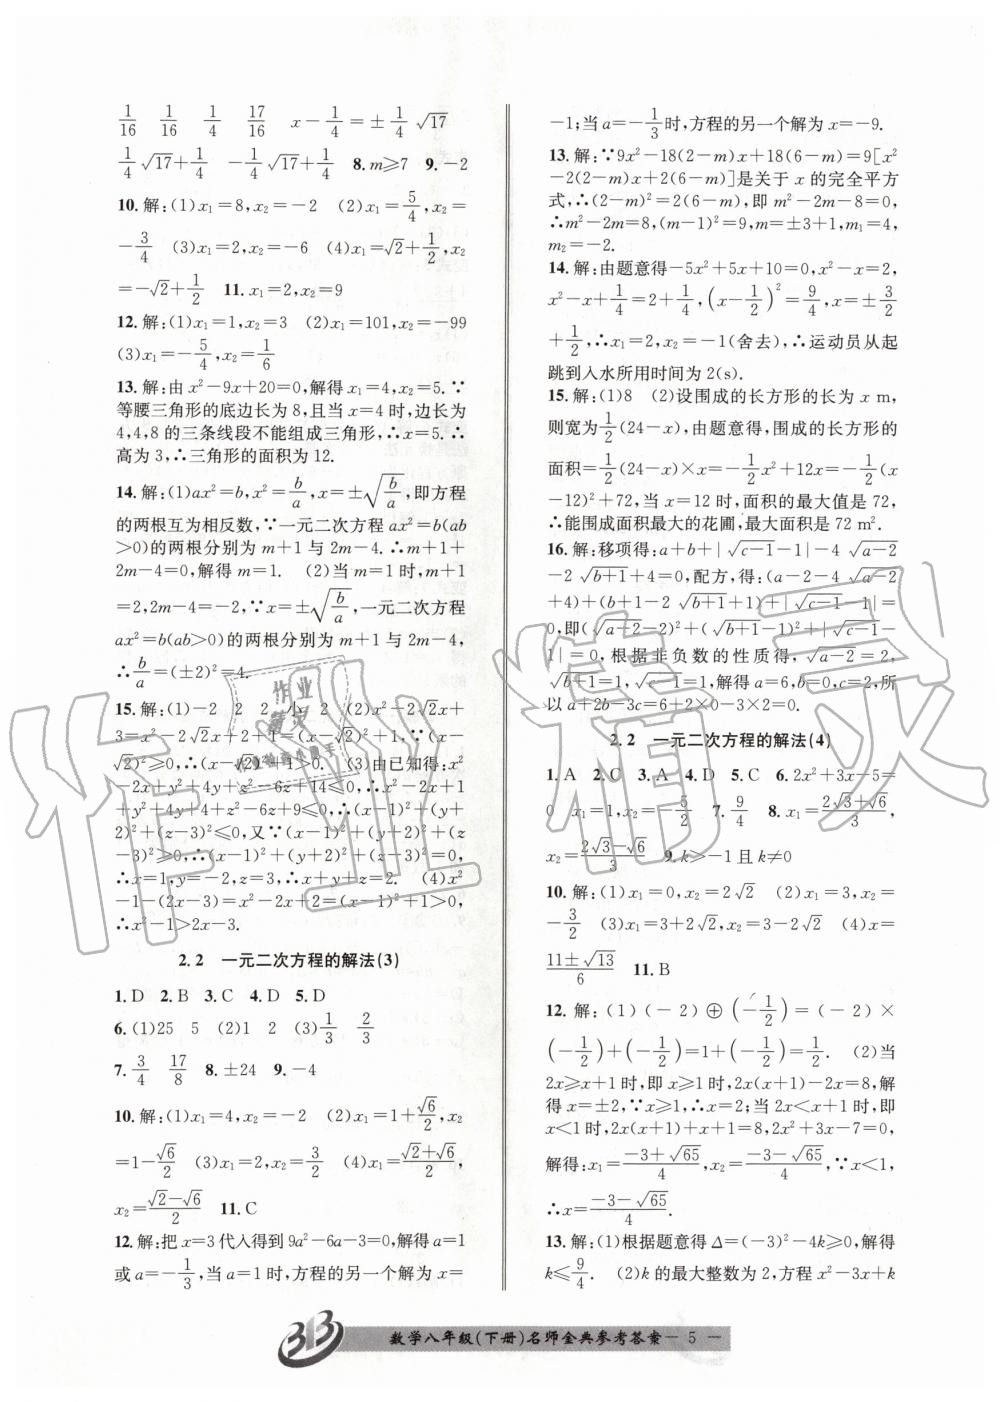 1/16  1/16  1/4  17/16  x-1/4=±1/4√17
1/4√17+1/4  -1/4√17+1/4  8. m≥7  9. -2
10. 解:(1)x₁=8,x₂=-2  (2)x₁=5/4,x₂=
-3/4  (3)x₁=2,x₂=-6  (4)x₁=√2+1/2,x₂
=-√2+1/2  11. x₁=2,x₂=9
12. 解:(1)x₁=1,x₂=3  (2)x₁=101,x₂=-99
(3)x₁=-5/4,x₂=1/6
13. 解:由 x²-9x+20=0,解得 x₁=4,x₂=5. ∵
等腰三角形的底边长为 8,且当 x=4 时,边长为
4,4,8 的三条线段不能组成三角形,∴x=5. ∴
高为 3,∴三角形的面积为 12.
14. 解:(1)ax²=b,x²=b/a,x=±√(b/a),即方程
的两根互为相反数,∵一元二次方程 ax²=b(ab
>0)的两根分别为 m+1 与 2m-4. ∴m+1+
2m-4=0,解得 m=1.  (2)当 m=1 时,m+1
=2,2m-4=-2,∵x=±√(b/a),一元二次方程
ax²=b(ab>0)的两根分别为 m+1 与 2m-4,
∴b/a=(±2)²=4.
15. 解:(1)-2  2  2  小  2  (2)x²-2√2x+
3=x²-2√2x+2+1=(x-√2)²+1,∵(x-
√2)²≥0,∴(x-√2)²+1>0.  (3)由已知得:x²
-2x+y²+4y+z²-6z+14≤0,∴x²-2x+1
+y²+4y+4+z²-6z+9≤0,∴(x-1)²+(y+
2)²+(z-3)²≤0,又∵(x-1)²+(y+2)²+(z-
3)²≥0,∴(x-1)²+(y+2)²+(z-3)²=0,
∴x=1,y=-2,z=3,∴x+y+z=2.  (4)x²
-1-(2x-3)=x²-2x+2=(x-1)²+1>0,
∴x²-1>2x-3.
2.2  一元二次方程的解法(3)
1. D  2. B  3. C  4. D  5. D
6. (1)25  5  (2)1  2  (3)1/3  2/3
7. 3/4  17/8  8. ±24  9. -4
10. 解:(1)x₁=4,x₂=-2  (2)x₁=1+√6/2,x₂
=1-√6/2  (3)x₁=2,x₂=1/3  (4)x₁=(√2+√6)/2,
x₂=(√2-√6)/2  11. C
12. 解:把 x=3 代入得到 9a²-6a-3=0,解得 a=1
或 a=-1/3,当 a=1 时,方程的另一个解为 x=
-1;当 a=-1/3时,方程的另一个解为 x=-9.
13. 解:∵9x²-18(2-m)x+18(6-m)=9[x²
-2(2-m)x+2(6-m)]是关于 x 的完全平方
式,∴(2-m)²=2(6-m),即 m²-2m-8=0,
∴m²-2m=8,(m-1)²=9,m=±3+1,m₁=4,
m₂=-2.
14. 解:由题意得-5x²+5x+10=0,x²-x=2,
x²-x+1/4=2+1/4,(x-1/2)²=9/4,x=±3/2
+1/2,∴x₁=2,x₂=-1(舍去),∴运动员从起
跳到入水所用时间为 2(s).
15. 解:(1)8  (2)设围成的长方形的长为 x m,
则宽为1/2(24-x),由题意得,围成的长方形的
面积=1/2(24-x)×x=-1/2x²+12x=-1/2(x
-12)²+72,当 x=12 时,面积的最大值是 72,
∴能围成面积最大的花圃,最大面积是 72 m².
16. 解:移项得:a+b+|√(c-1)-1|-4√(a-2)
-2√(b+1)+4=0,配方,得:(a-2-4√(a-2)
+4)+(b+1-2√(b+1)+1)+|√(c-1)-1|=
0,即(√(a-2)-2)²+(√(b+1)-1)²+|√(c-1)-
1|=0,根据非负数的性质得,√(a-2)=2,
√(b+1)=1,√(c-1)=1,解得 a=6,b=0,c=2,所
以 a+2b-3c=6+2×0-3×2=0.
2.2  一元二次方程的解法(4)
1. A  2. C  3. A  4. D  5. C  6. 2x²+3x-5=
0  x₁=1,x₂=-5/2  7. 9/4  8. x₁=(2√3+√6)/3,
x₂=(2√3-√6)/3  9. k>-1 且 k≠0
10. 解:(1)x₁=0,x₂=2√2  (2)x₁=3,x₂=
-3/2  (3)x₁=3+2√2,x₂=3-2√2  (4)x=
(11±√13)/6  11. B
12. 解:(1)(-2)⊕(-1/2)=(-2)×
(-1/2)+(-1/2)=1+(-1/2)=1/2.  (2)当
2x≥x+1 时,即 x≥1 时,2x(x+1)-2x=8,解
得 x=±2,∵x≥1,∴x=2;当 2x<x+1 时,即
x<1 时,2x(x+1)+x+1=8,2x²+3x-7=0,
解得:x₁=(-3+√65)/4,x₂=(-3-√65)/4,∵x<1,
∴x=(-3-√65)/4.
13. 解:(1)根据题意得 Δ=(-3)²-4k≥0,解得
k≤9/4.  (2)k 的最大整数为 2,方程 x²-3x+k
数学八年级(下册)名师金典参考答案 - 5 -
作业精灵